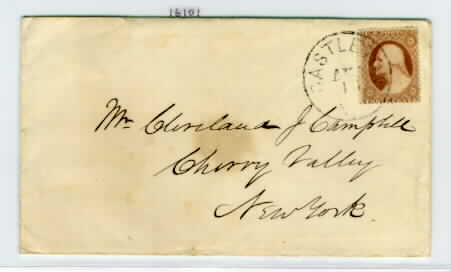 16101
CASTLE
Mr Cleveland J Campbell
Cherry Valley
New York.